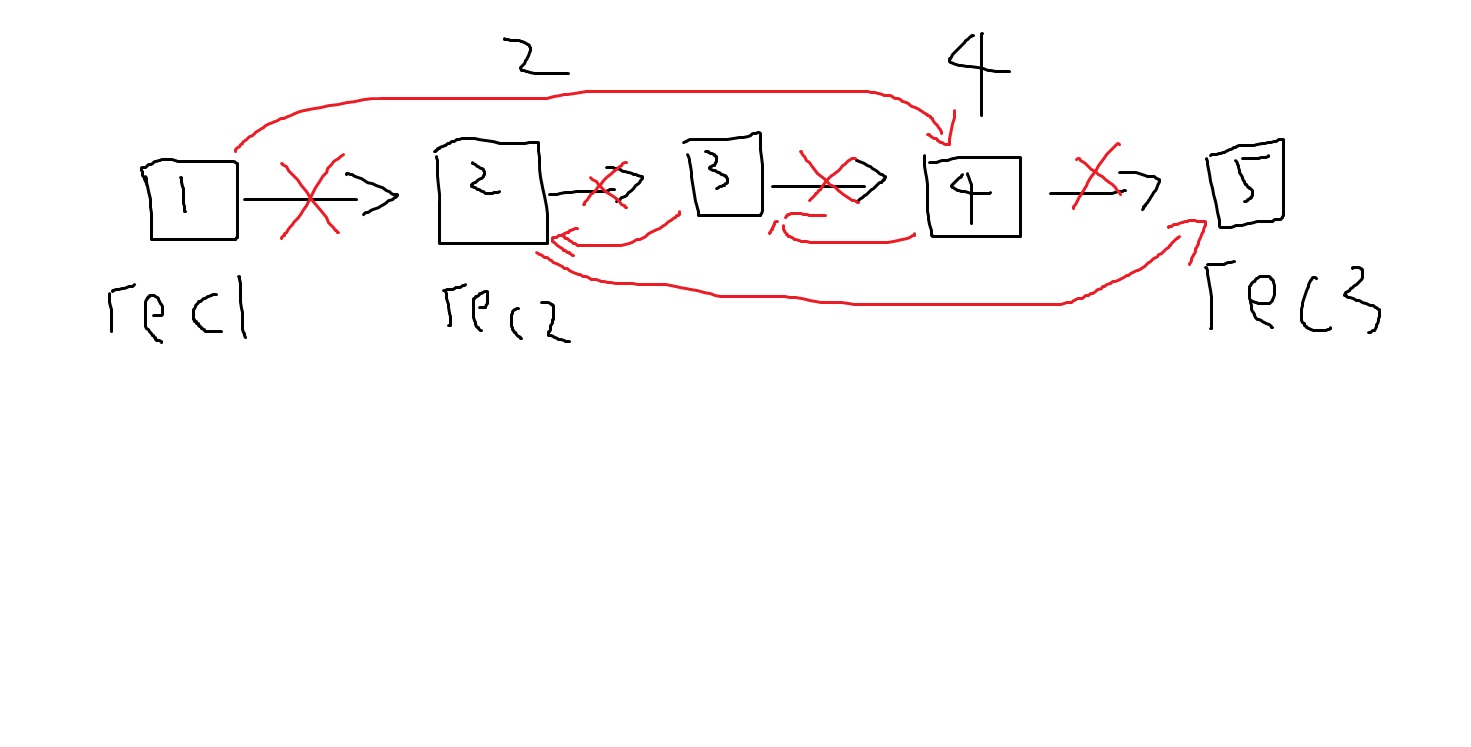 2 4
1 2 3 4 5
rec1 rec2 rec3